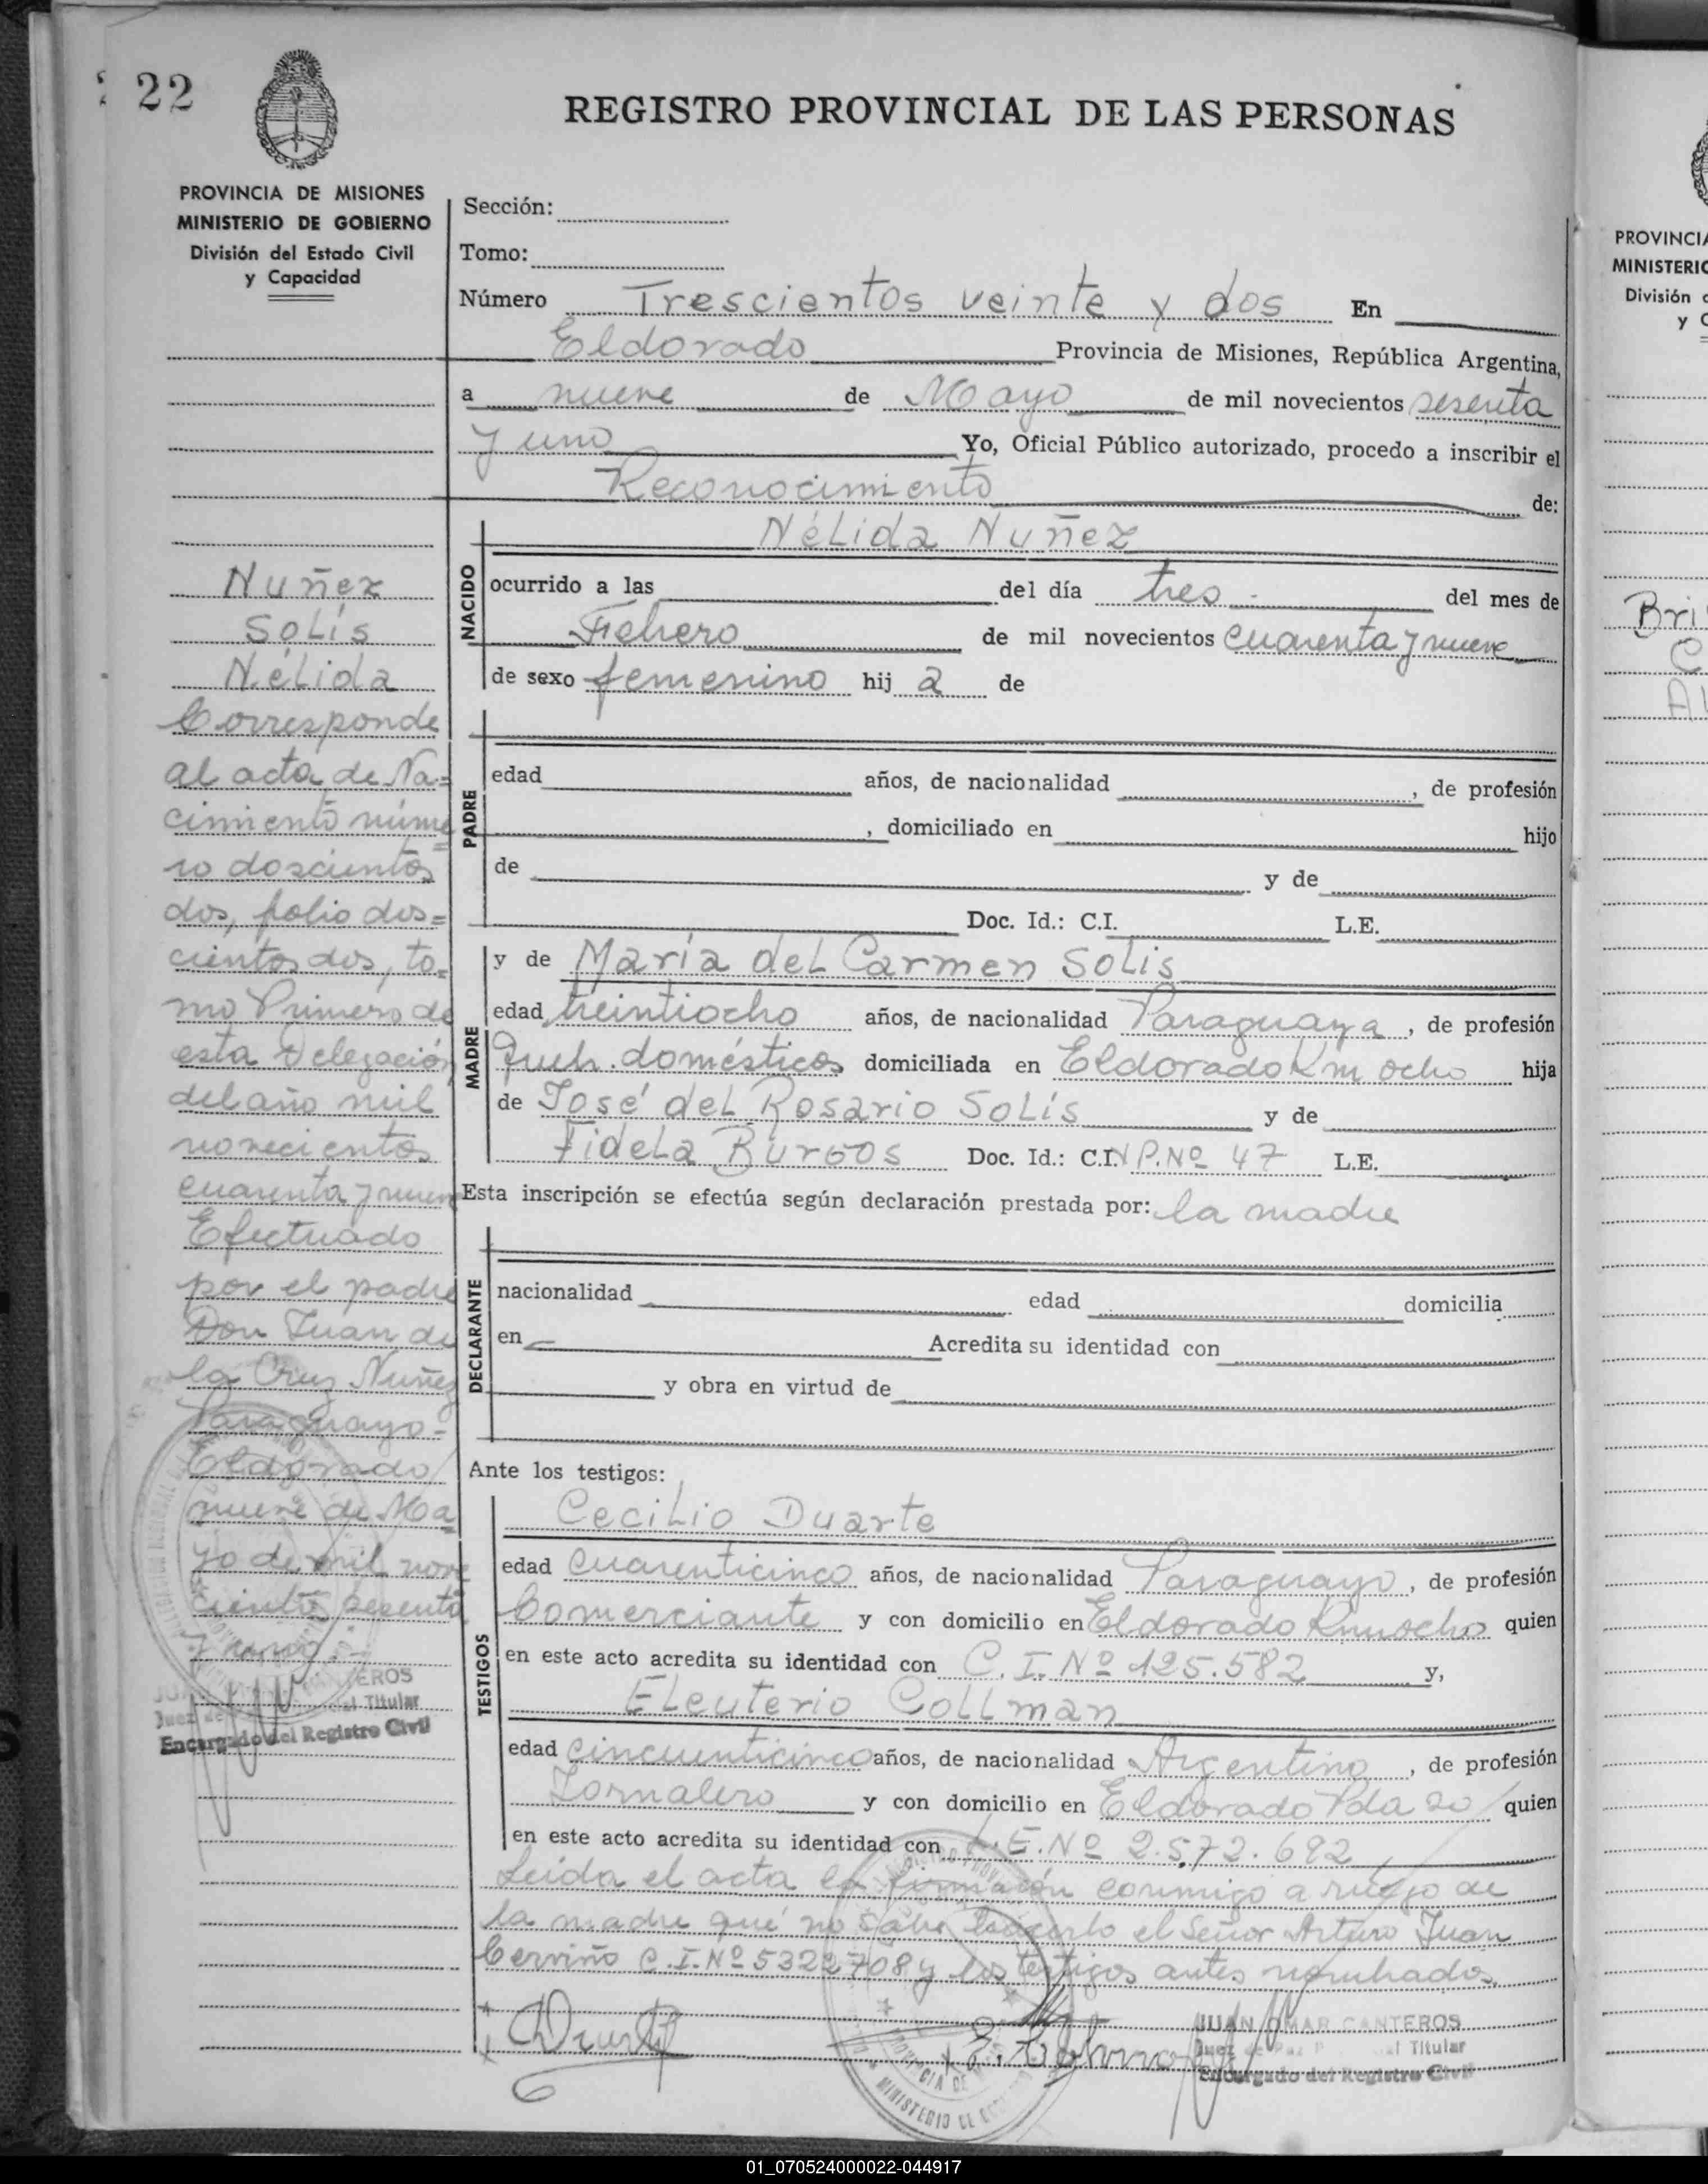 22
REGISTRO PROVINCIAL DE LAS PERSONAS
PROVINCIA DE MISIONES
MINISTERIO DE GOBIERNO
División del Estado Civil
y Capacidad
Nuñez
Solís
Nélida
Corresponde
al acta de Na=
cimiento núme=
ro doscientos
dos, folio dos=
cientos dos, to=
mo Primero de
esta Delegación
del año mil
novecientos
cuarenta y nueve
Efectuado
por el padre
Don Juan de
la Cruz Nuñez
Paraguayo=
Eldorado
nueve de Ma=
yo de mil nove
cientos sesenta
y uno
TEROS
l Titular
Juez de
Encargado del Registro Civil
Sección:
Tomo:
Número Trescientos veinte y dos En
Eldorado Provincia de Misiones, República Argentina,
a nueve de Mayo de mil novecientos sesenta
y uno Yo, Oficial Público autorizado, procedo a inscribir el
Reconocimiento de:
NACIDO
Nélida Nuñez
ocurrido a las del día tres - del mes de
Febrero de mil novecientos cuarenta y nueve
de sexo femenino hij a de
PADRE
edad años, de nacionalidad , de profesión
, domiciliado en hijo
de y de
Doc. Id.: C.I. L.E.
MADRE
y de María del Carmen Solis
edad treintiocho años, de nacionalidad Paraguaya , de profesión
Queh. domésticos domiciliada en Eldorado Km ocho hija
de José del Rosario Solís y de
Fidela Burgos Doc. Id.: C.I. P.Nº 47 L.E.
Esta inscripción se efectúa según declaración prestada por: la madre
DECLARANTE
nacionalidad edad domicilia
en Acredita su identidad con
y obra en virtud de
Ante los testigos:
TESTIGOS
Cecilio Duarte
edad cuarenticinco años, de nacionalidad Paraguayo , de profesión
Comerciante y con domicilio en Eldorado Km ocho quien
en este acto acredita su identidad con C.I. Nº 125.582 y,
Eleuterio Collman
edad cincuenticinco años, de nacionalidad Argentino , de profesión
Jornalero y con domicilio en Eldorado Pda 20 quien
en este acto acredita su identidad con L.E. Nº 2.572.692
Leída el acta la conmigo a ruego de
la madre que no sabe hacerlo el Señor Arturo Juan
Cerviño C.I. Nº 5322708 y los testigos antes nombrados.
Duarte
JUAN OMAR CANTEROS
Juez de Paz Titular
Encargado del Registro Civil
MINISTERIO DE
PROVINCIA
MINISTERIO
División
y
Bri
C
Al
01_070524000022-044917